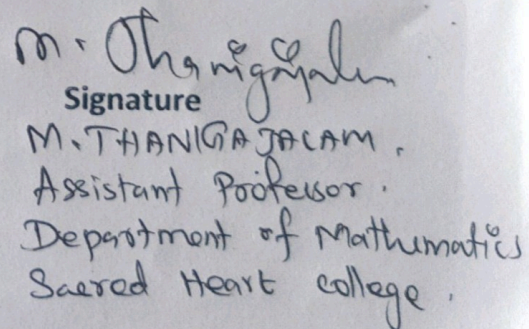 M. Thanigajalam
Signature
M. THANIGAJALAM.
Assistant Professor.
Department of Mathematics
Sacred Heart college.